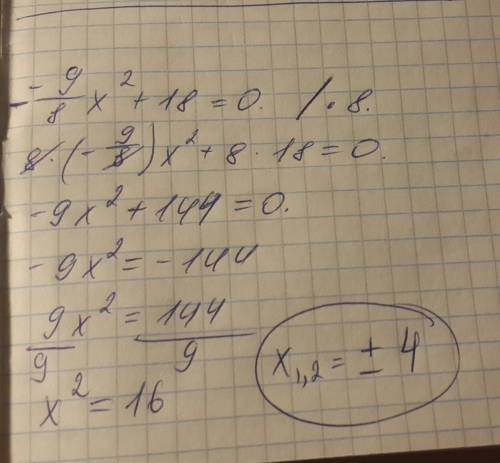 -9/8 x² + 18 = 0. / · 8.
8 · (-9/8) x² + 8 · 18 = 0.
-9x² + 144 = 0.
-9x² = -144
9x²/9 = 144/9
x² = 16
x₁,₂ = ± 4